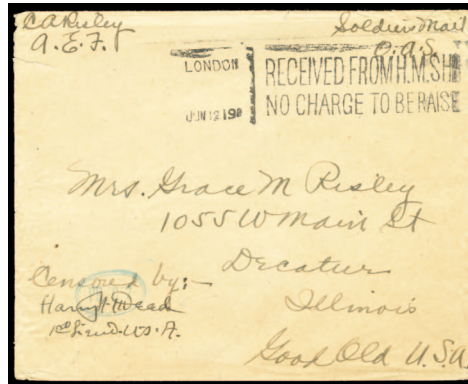 CA Risley
A.E.F.
Soldiers Mail
O.A.S.
LONDON
JUN 12 19
RECEIVED FROM H.M. SH
NO CHARGE TO BE RAISE
Mrs. Grace M Risley
1055 W Main St
Decatur
Illinois
Good Old U.S.A.
Censored by:-
Harry Mead
1st Lieut. U.S.A.